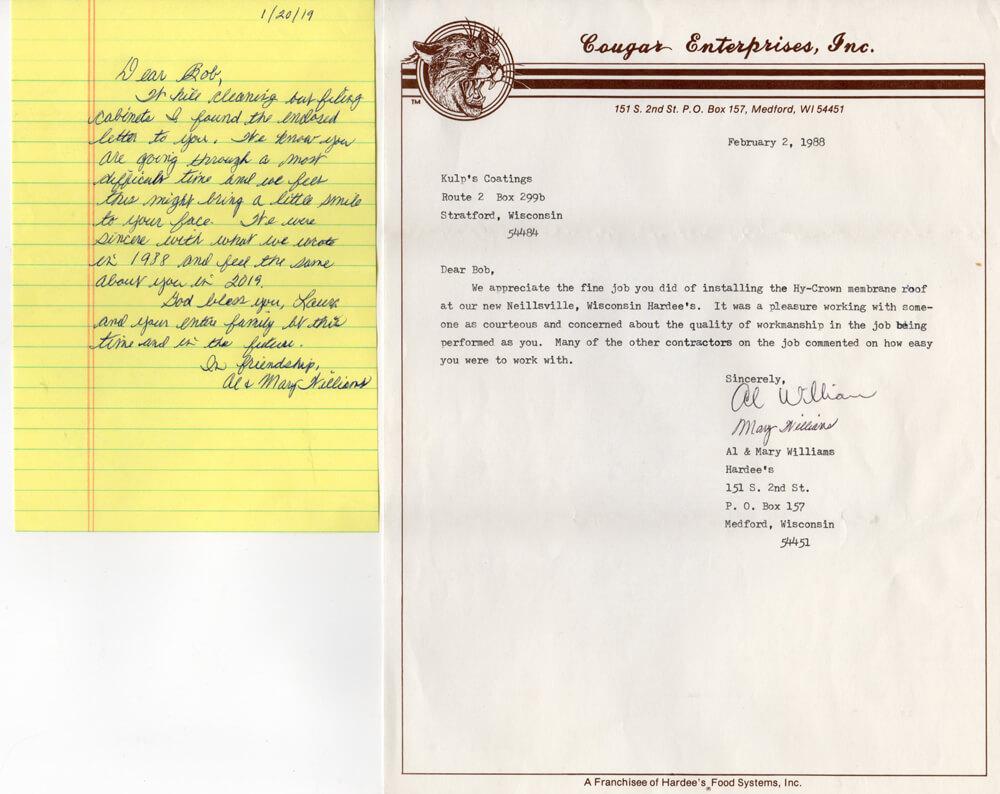 1/20/19
Dear Bob,
While cleaning out filing
cabinets I found the enclosed
letter to you. We know you
are going through a most
difficult time and we feel
this might bring a little smile
to your face. We were
sincere with what we wrote
in 1988 and feel the same
about you in 2019.
God bless you,
and your entire family at this
time and in the future.
In friendship,
Al & Mary Williams
Cougar Enterprises, Inc.
TM
151 S. 2nd St. P.O. Box 157, Medford, WI 54451
February 2, 1988
Kulp's Coatings
Route 2 Box 299b
Stratford, Wisconsin
54484
Dear Bob,
We appreciate the fine job you did of installing the Hy-Crown membrane roof
at our new Neillsville, Wisconsin Hardee's. It was a pleasure working with some-
one as courteous and concerned about the quality of workmanship in the job being
performed as you. Many of the other contractors on the job commented on how easy
you were to work with.
Sincerely,
Al William
Mary Williams
Al & Mary Williams
Hardee's
151 S. 2nd St.
P. O. Box 157
Medford, Wisconsin
54451
A Franchisee of Hardee's® Food Systems, Inc.